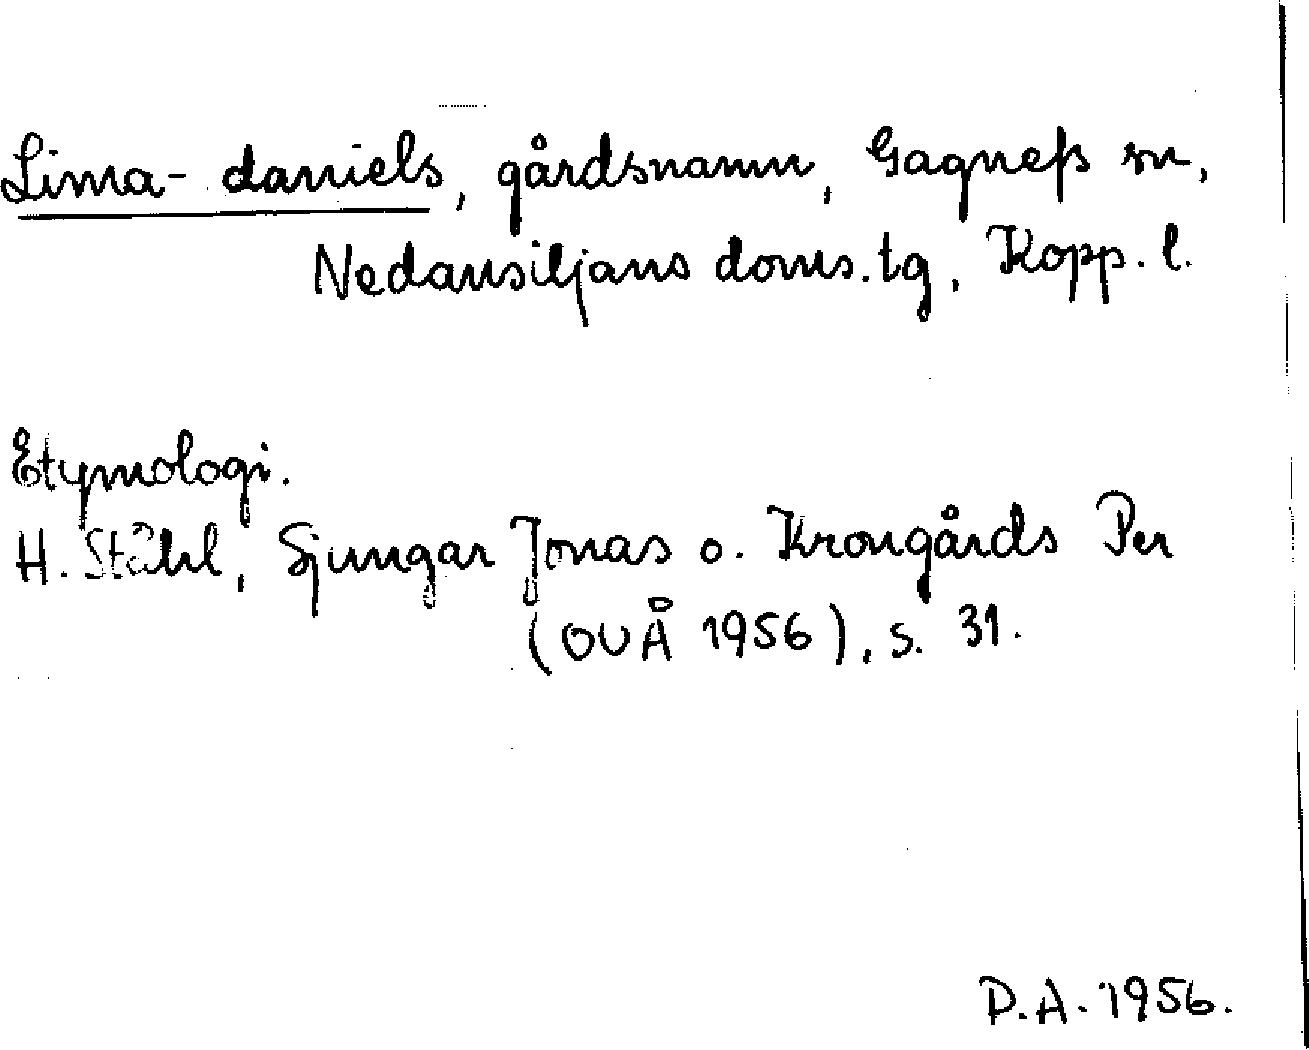 Lima-daniels, gårdsnamn, Gagnefs sn,
Nedansiljans doms.tg, Kopp. l.
Etymologi.
H. Ståhl, Sjungar Jonas o. Krongårds Per
(OUÅ 1956), s. 31.
P.A. 1956.